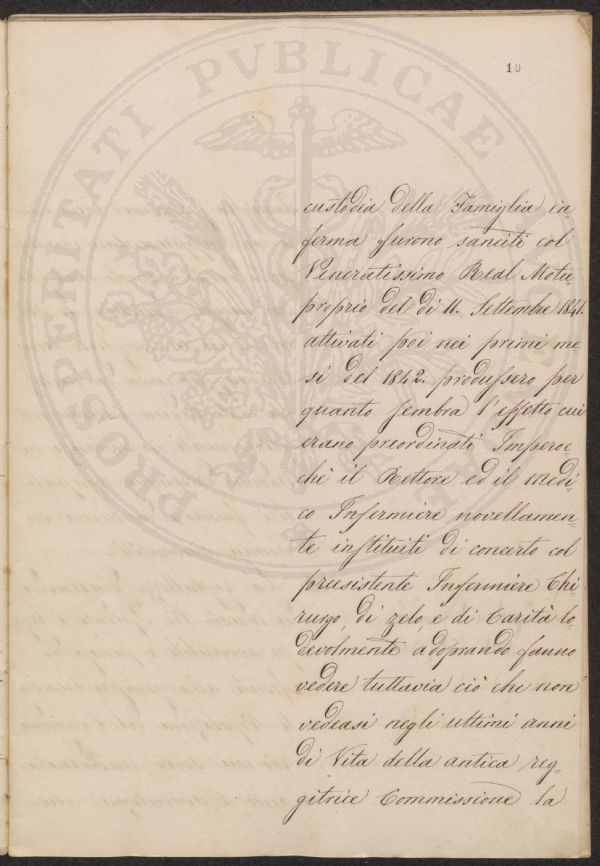 10
PROSPERITATI PVBLICAE
custodia della Famiglia in-
ferma furono sanciti col
Veneratissimo Real Motu-
proprio del dì 11. Settembre 1841.
attivati poi nei primi me-
si del 1842. produssero per
quanto sembra l'effetto cui
erano preordinati Imperoc
chè il Rettore ed il Medi-
co Infermiere novellamen-
te instituiti di concerto col
preesistente Infermiere Chi
rurgo, di zelo, e di Carità lo-
devolmente adoprando fanno
vedere tuttavia ciò che non
vedeasi negli ultimi anni
di Vita della antica reg-
gitrice Commissione la